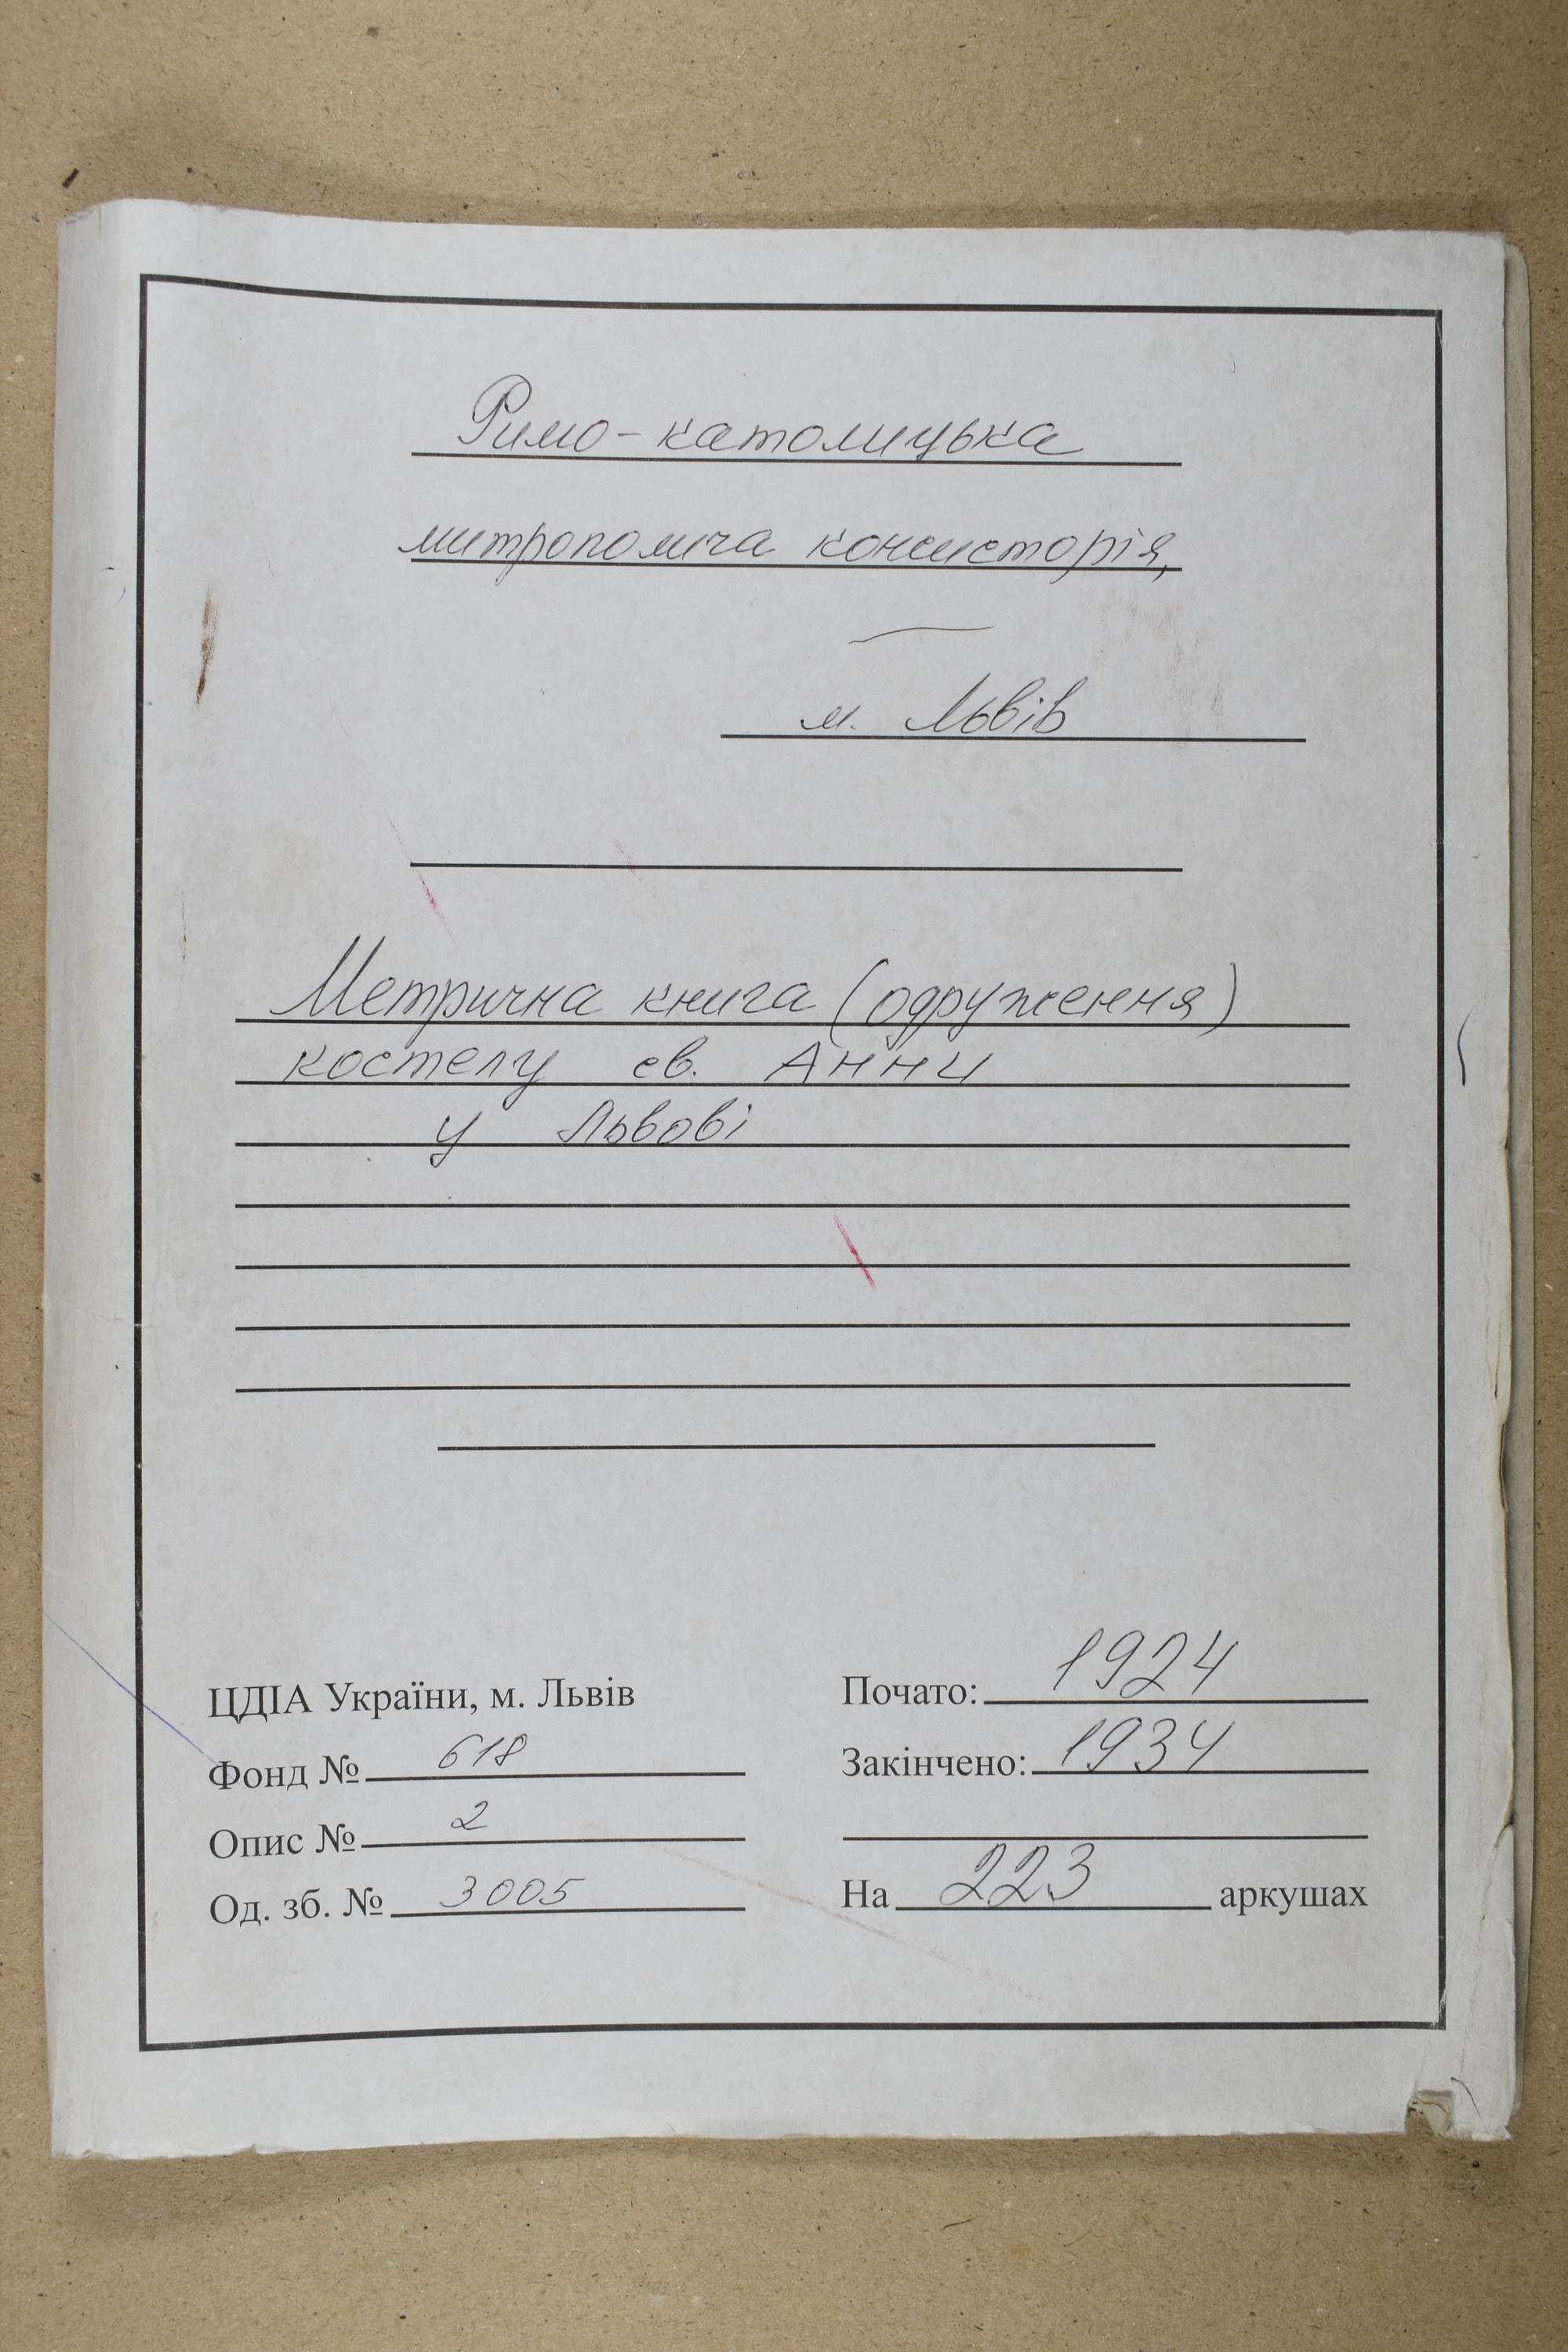 Римо-католицька
митрополича консисторія,
м. Львів
Метрична книга (одруження)
костелу св. Анни
у Львові
ЦДІА України, м. Львів
Фонд № 618
Опис № 2
Од. зб. № 3005
Почато: 1924
Закінчено: 1934
На 223 аркушах